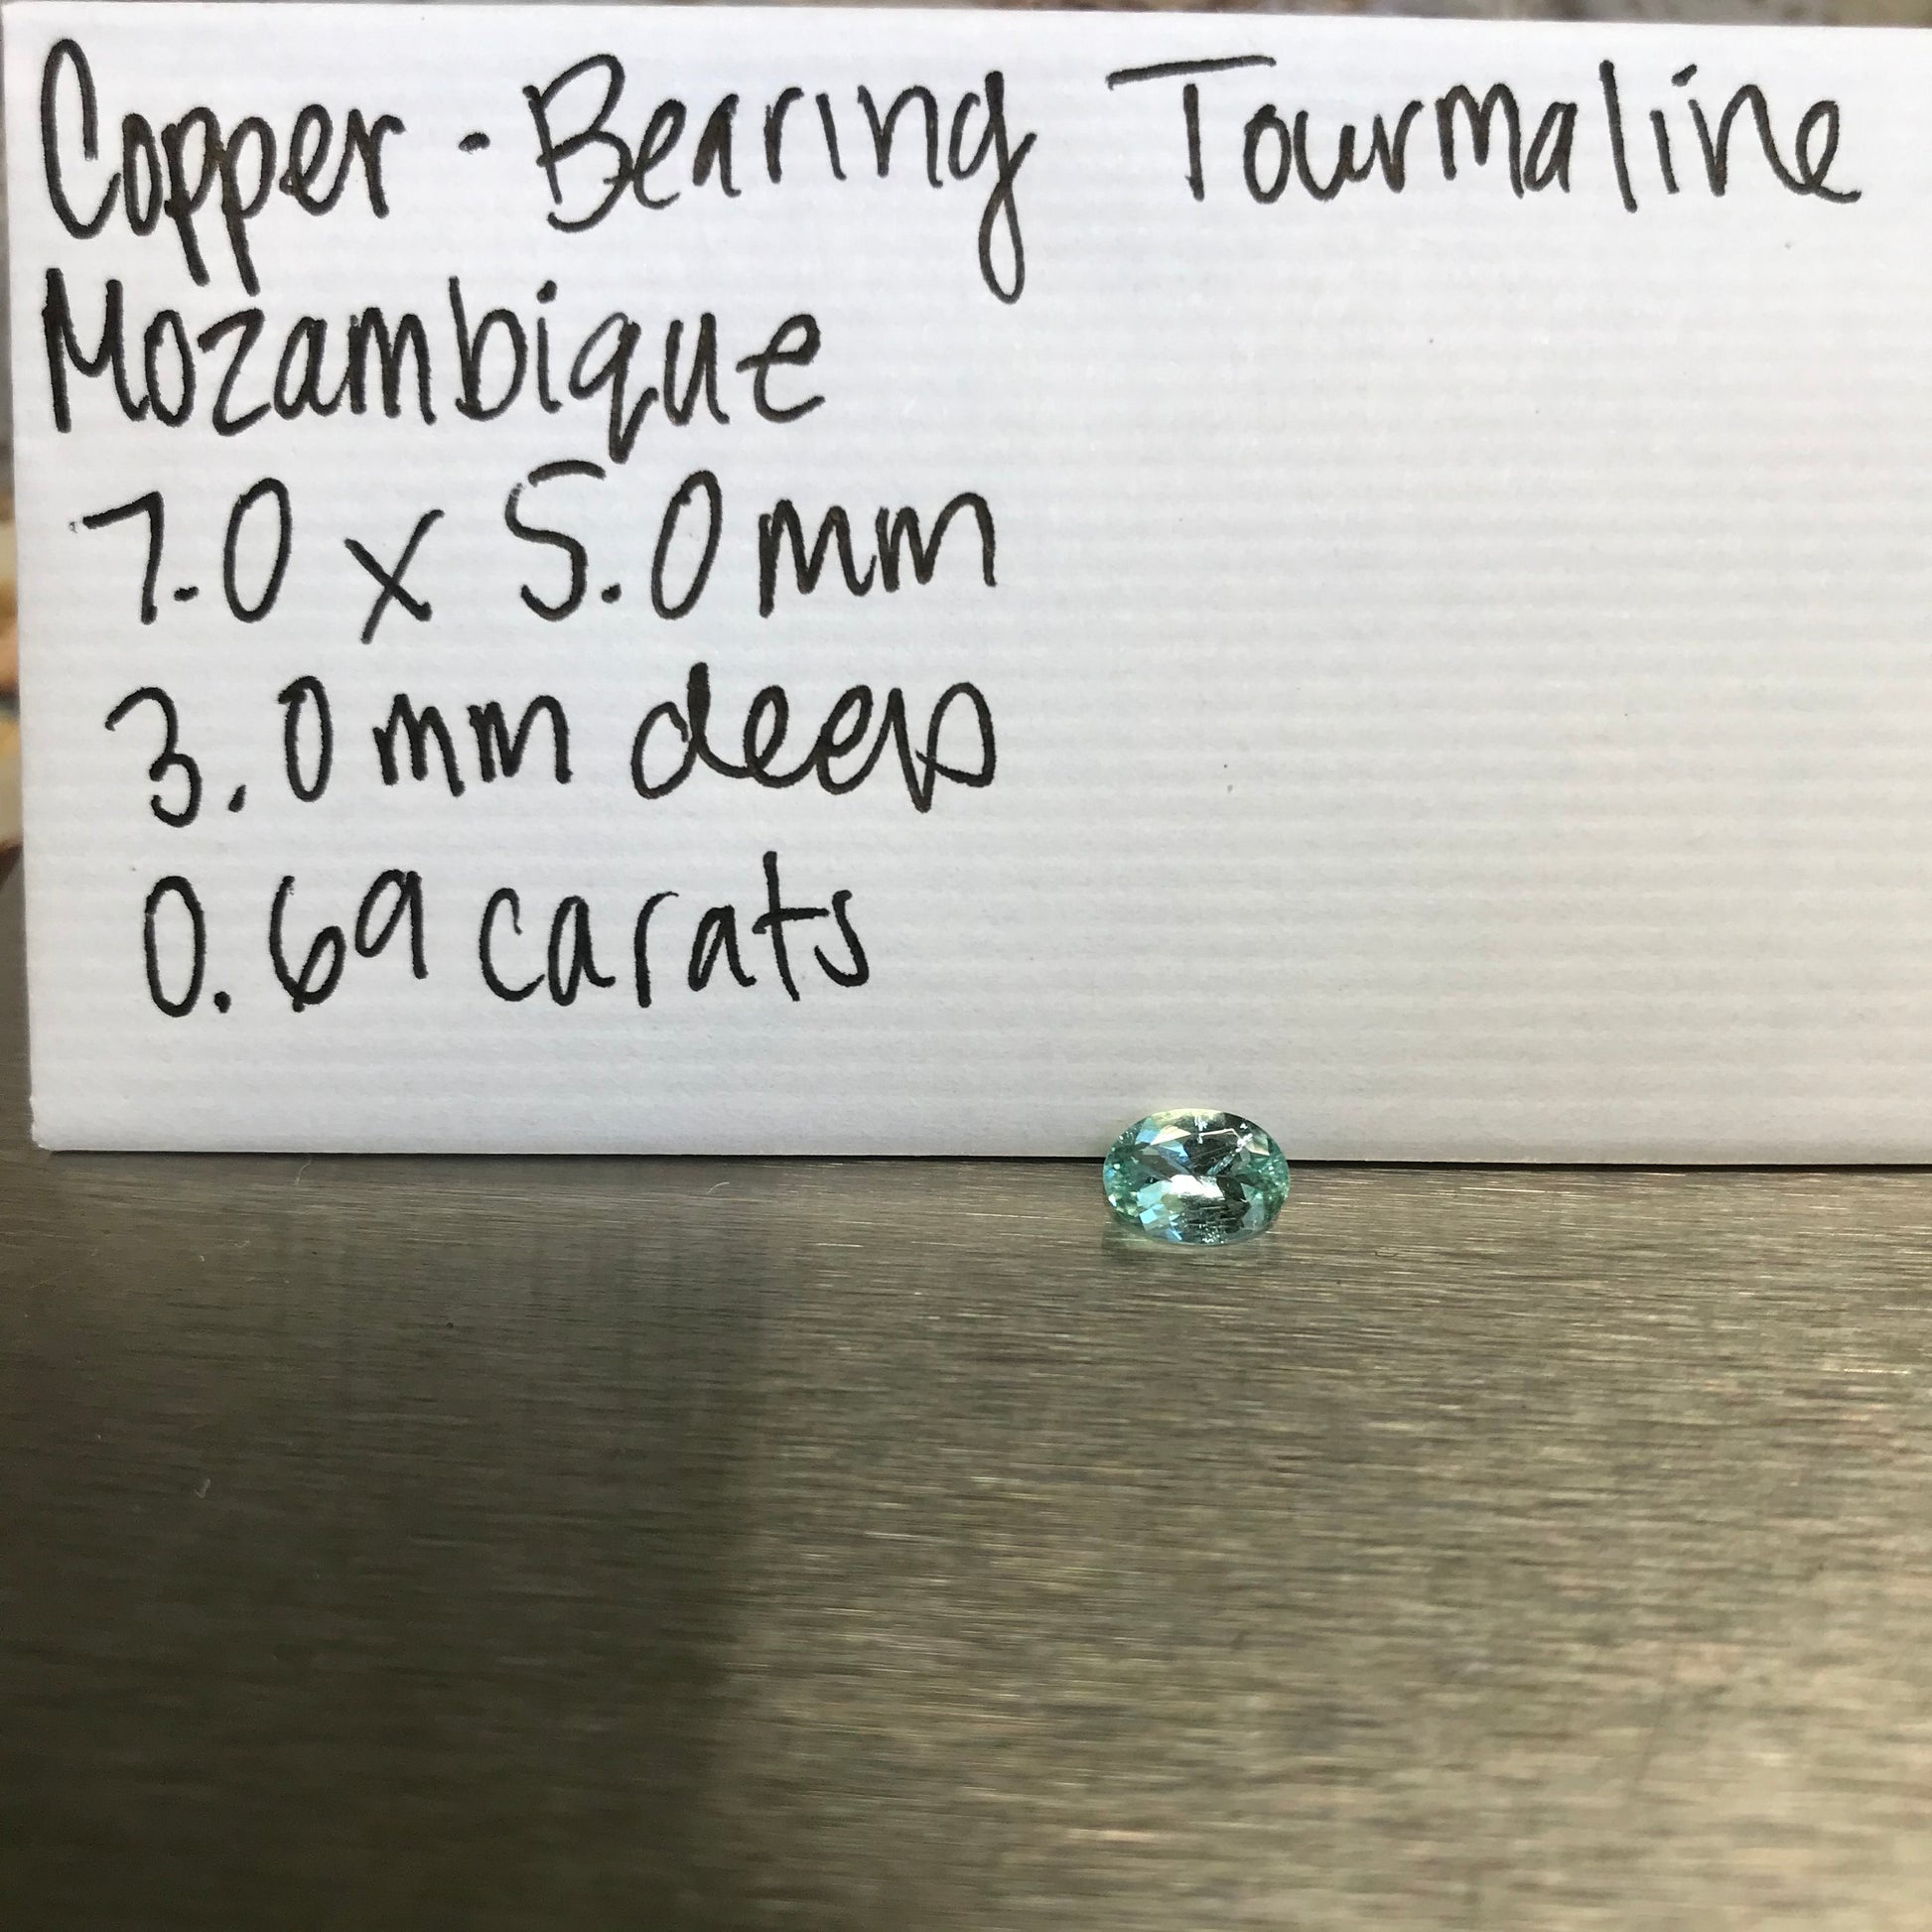 Copper-Bearing Tourmaline
Mozambique
7.0 x 5.0mm
3.0mm deep
0.69 carats